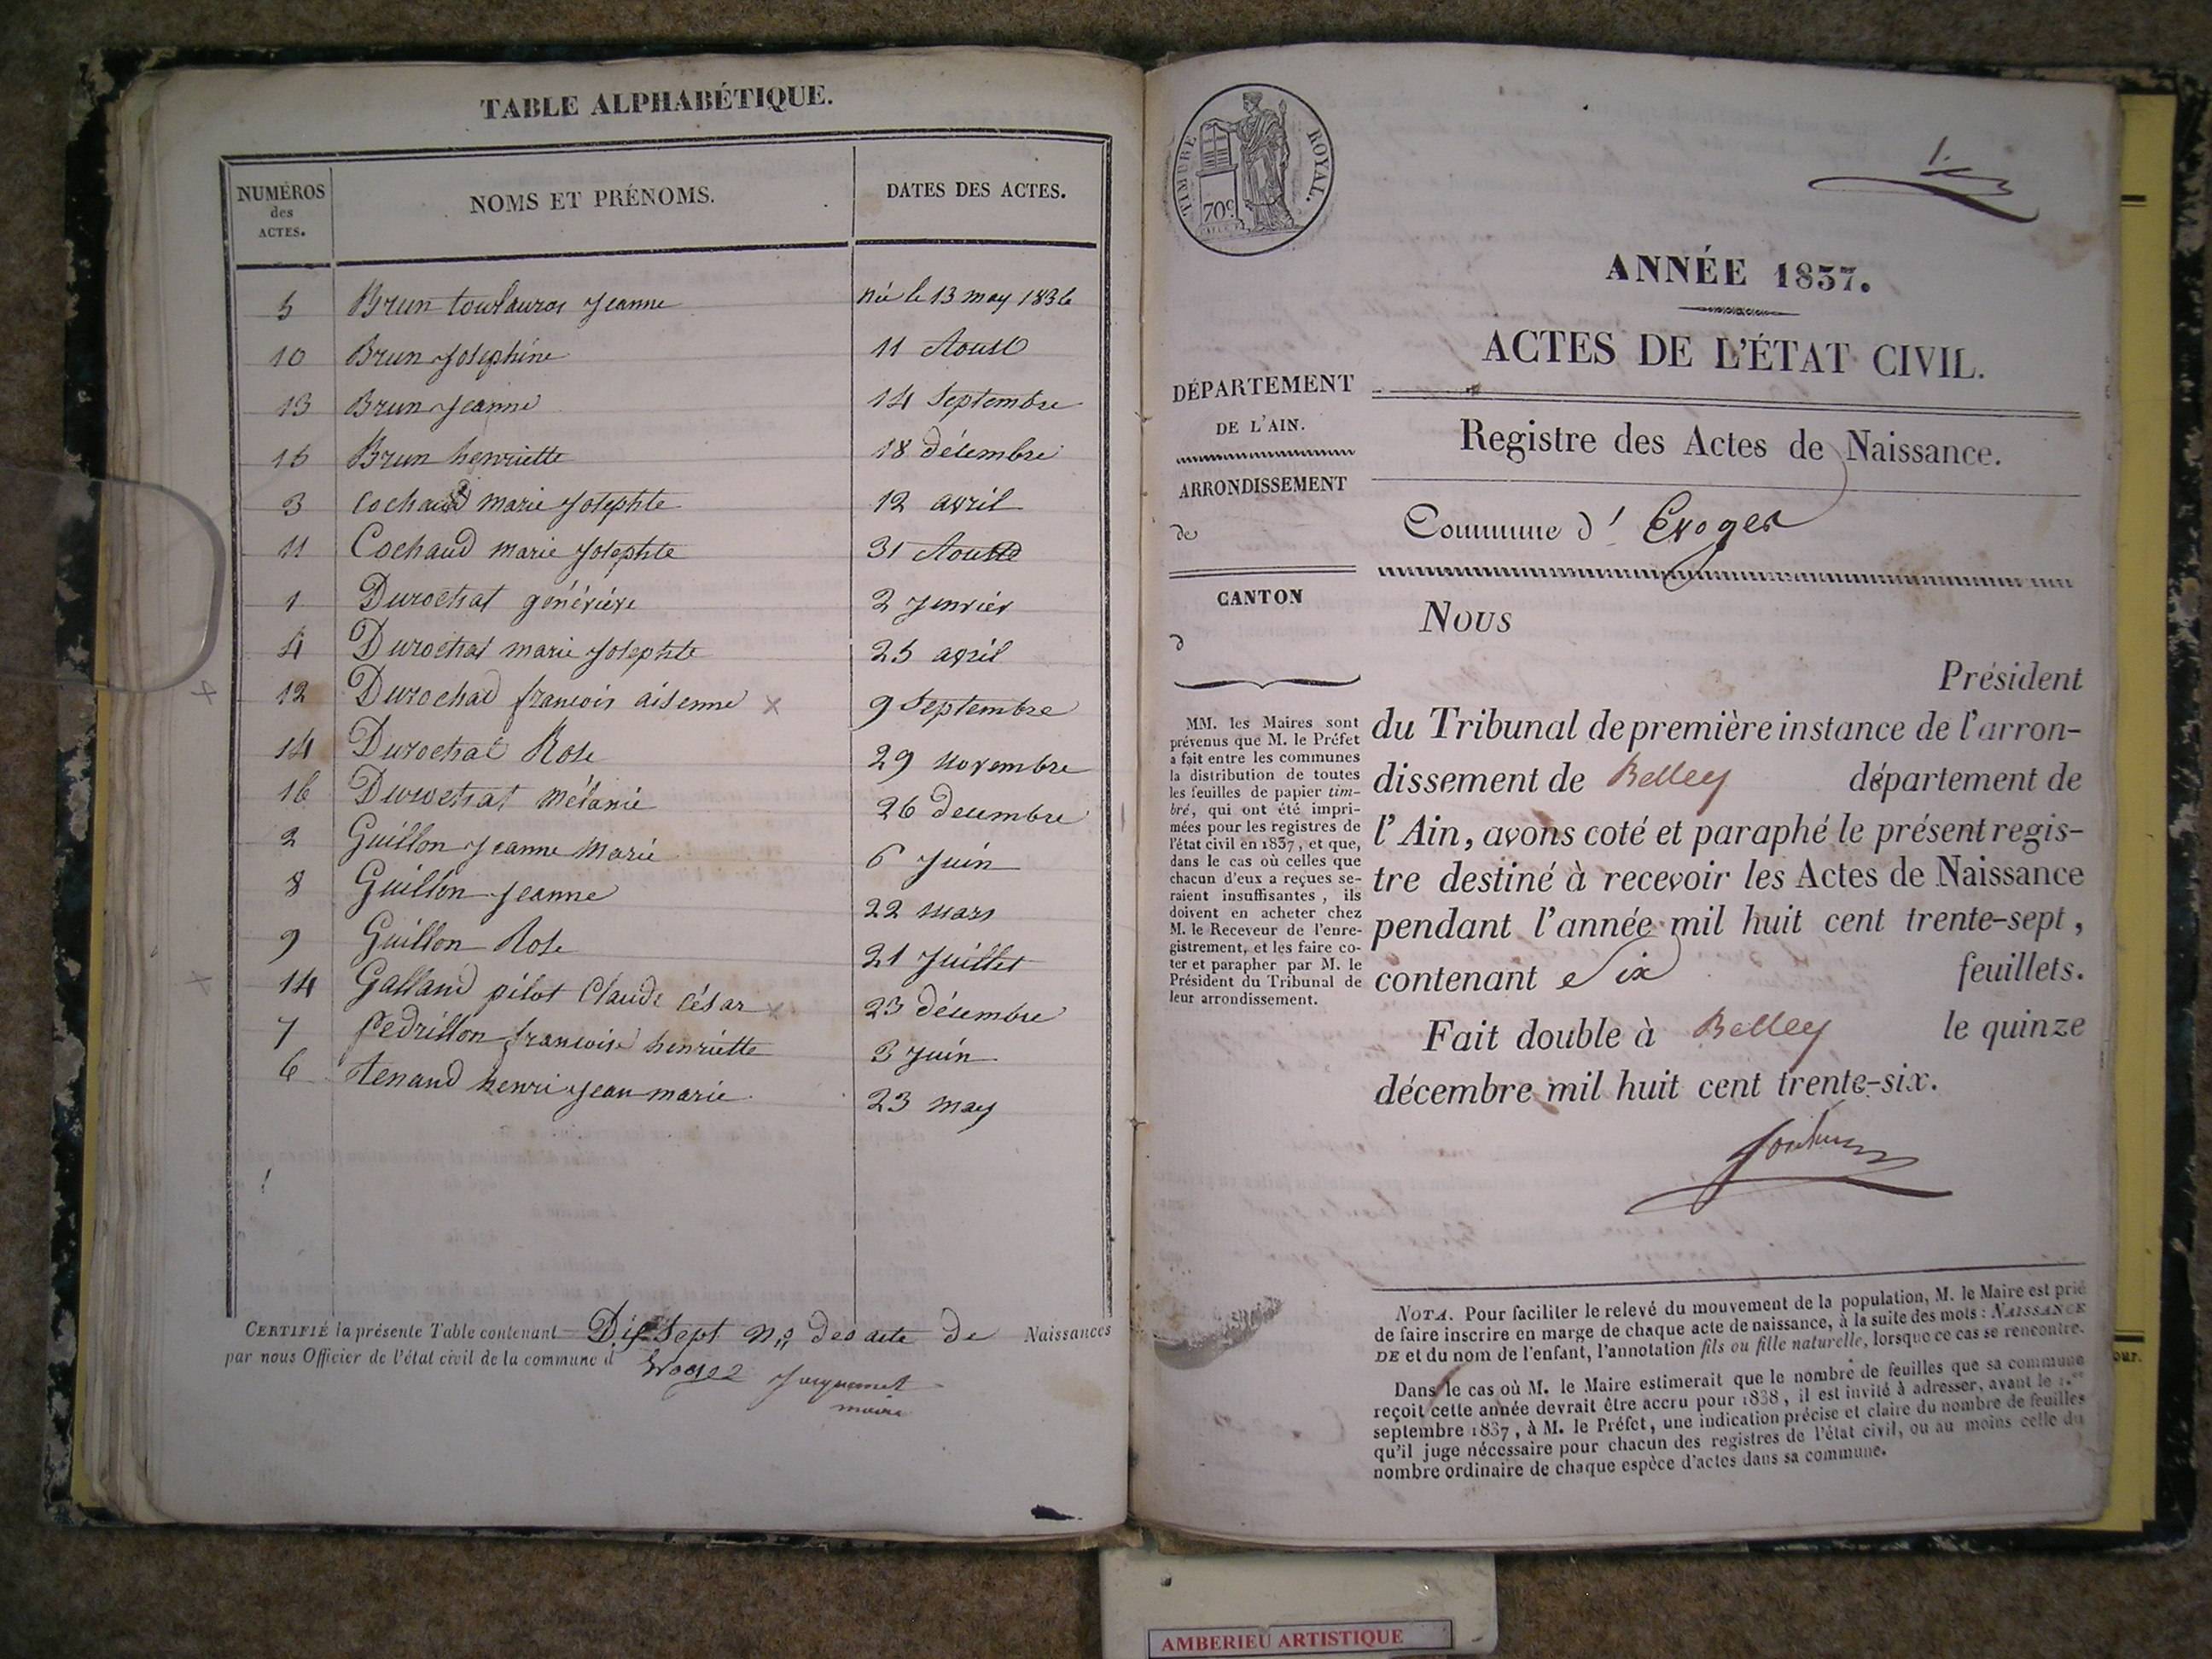 TABLE ALPHABÉTIQUE.
NUMÉROS des ACTES. NOMS ET PRÉNOMS. DATES DES ACTES.
5 Brun Jeanne née le 13 may 1836
10 Brun Josephine 11 Aoust
13 Brun Jeanne 14 Septembre
15 Brun henriette 18 décembre
3 Cochaud marie Josephte 12 avril
11 Cochaud marie Josephte 31 Aoust
1 Durochat généviève 2 Jenvier
4 Durochat marie Josephte 25 avril
12 Durochad francois aisenne x 9 Septembre
14 Durochat Rose 29 novembre
16 Durochat mélanie 26 decembre
2 Guillon Jeanne Marie 6 Juin
8 Guillon Jeanne 22 mars
9 Guillon Rose 21 Juillet
14 Galland pilot Claude César x 23 décembre
7 Pedrillon francoise henriette 3 Juin
6 tenand henri Jean marie 23 may
CERTIFIÉ la présente Table contenant Dix Sept nos des acte de Naissances
par nous Officier de l'état civil de la commune d' Evoges Juquemet
maire
TIMBRE ROYAL.
70c
ANNÉE 1837.
ACTES DE L'ÉTAT CIVIL.
DÉPARTEMENT
DE L'AIN.
ARRONDISSEMENT
de
CANTON
d
Registre des Actes de Naissance.
Commune d' Evoges
Nous
Président
du Tribunal de première instance de l'arron-
dissement de Belley département de
l'Ain, avons coté et paraphé le présent regis-
tre destiné à recevoir les Actes de Naissance
pendant l'année mil huit cent trente-sept,
contenant Six feuillets.
Fait double à Belley le quinze
décembre mil huit cent trente-six.
MM. les Maires sont
prévenus que M. le Préfet
a fait entre les communes
la distribution de toutes
les feuilles de papier tim-
bré, qui ont été impri-
mées pour les registres de
l'état civil en 1837, et que,
dans le cas où celles que
chacun d'eux a reçues se-
raient insuffisantes, ils
doivent en acheter chez
M. le Receveur de l'enre-
gistrement, et les faire co-
ter et parapher par M. le
Président du Tribunal de
leur arrondissement.
NOTA. Pour faciliter le relevé du mouvement de la population, M. le Maire est prié
de faire inscrire en marge de chaque acte de naissance, à la suite des mots : NAISSANCE
DE et du nom de l'enfant, l'annotation fils ou fille naturelle, lorsque ce cas se rencontre.
Dans le cas où M. le Maire estimerait que le nombre de feuilles que sa commune
reçoit cette année devrait être accru pour 1838, il est invité à adresser, avant le 1.er
septembre 1837, à M. le Préfet, une indication précise et claire du nombre de feuilles
qu'il juge nécessaire pour chacun des registres de l'état civil, ou au moins celle du
nombre ordinaire de chaque espèce d'actes dans sa commune.
our.
AMBERIEU ARTISTIQUE